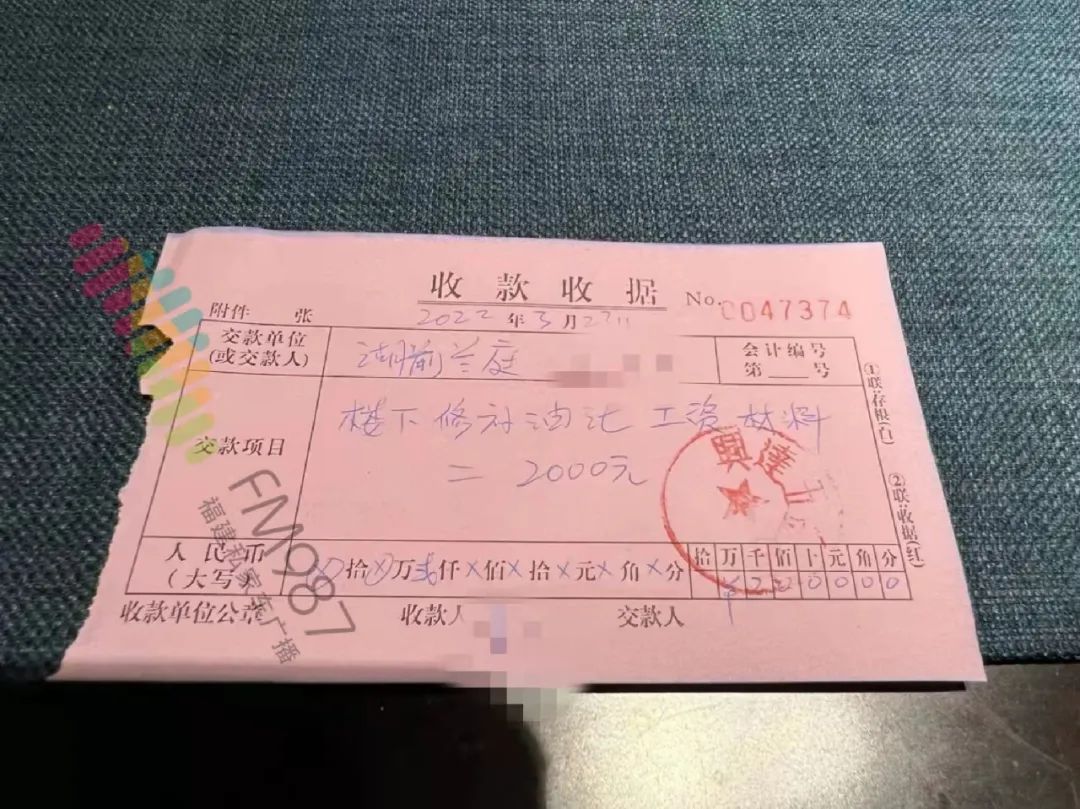 收款收据
No. 0047374
附件 张
2022年3月27日
交款单位
(或交款人)
湖前兰庭
会计编号
第 号
交款项目
楼下修补油漆 工资材料
= 2000元
興達
人民币
(大写)
拾 万 贰仟 × 佰 × 拾 × 元 × 角 × 分
拾 万 千 佰 十 元 角 分
¥ 2 0 0 0 0 0
收款单位公章
收款人
交款人
①联:存根(白)
②联:收据(红)
FM987
福建私家车广播